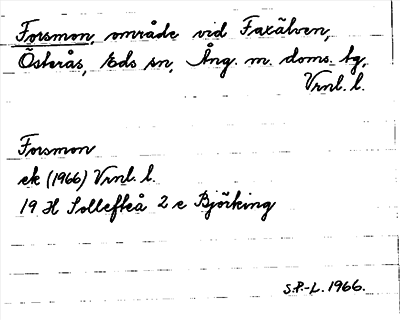 Forsmon, område vid Faxälven,
Österås, Eds sn, Ång. m. doms. tg,
Vrnl. l.
Forsmon
ek (1966) Vrnl. l.
19 H Sollefteå 2 c Björking
S.P.-L. 1966.